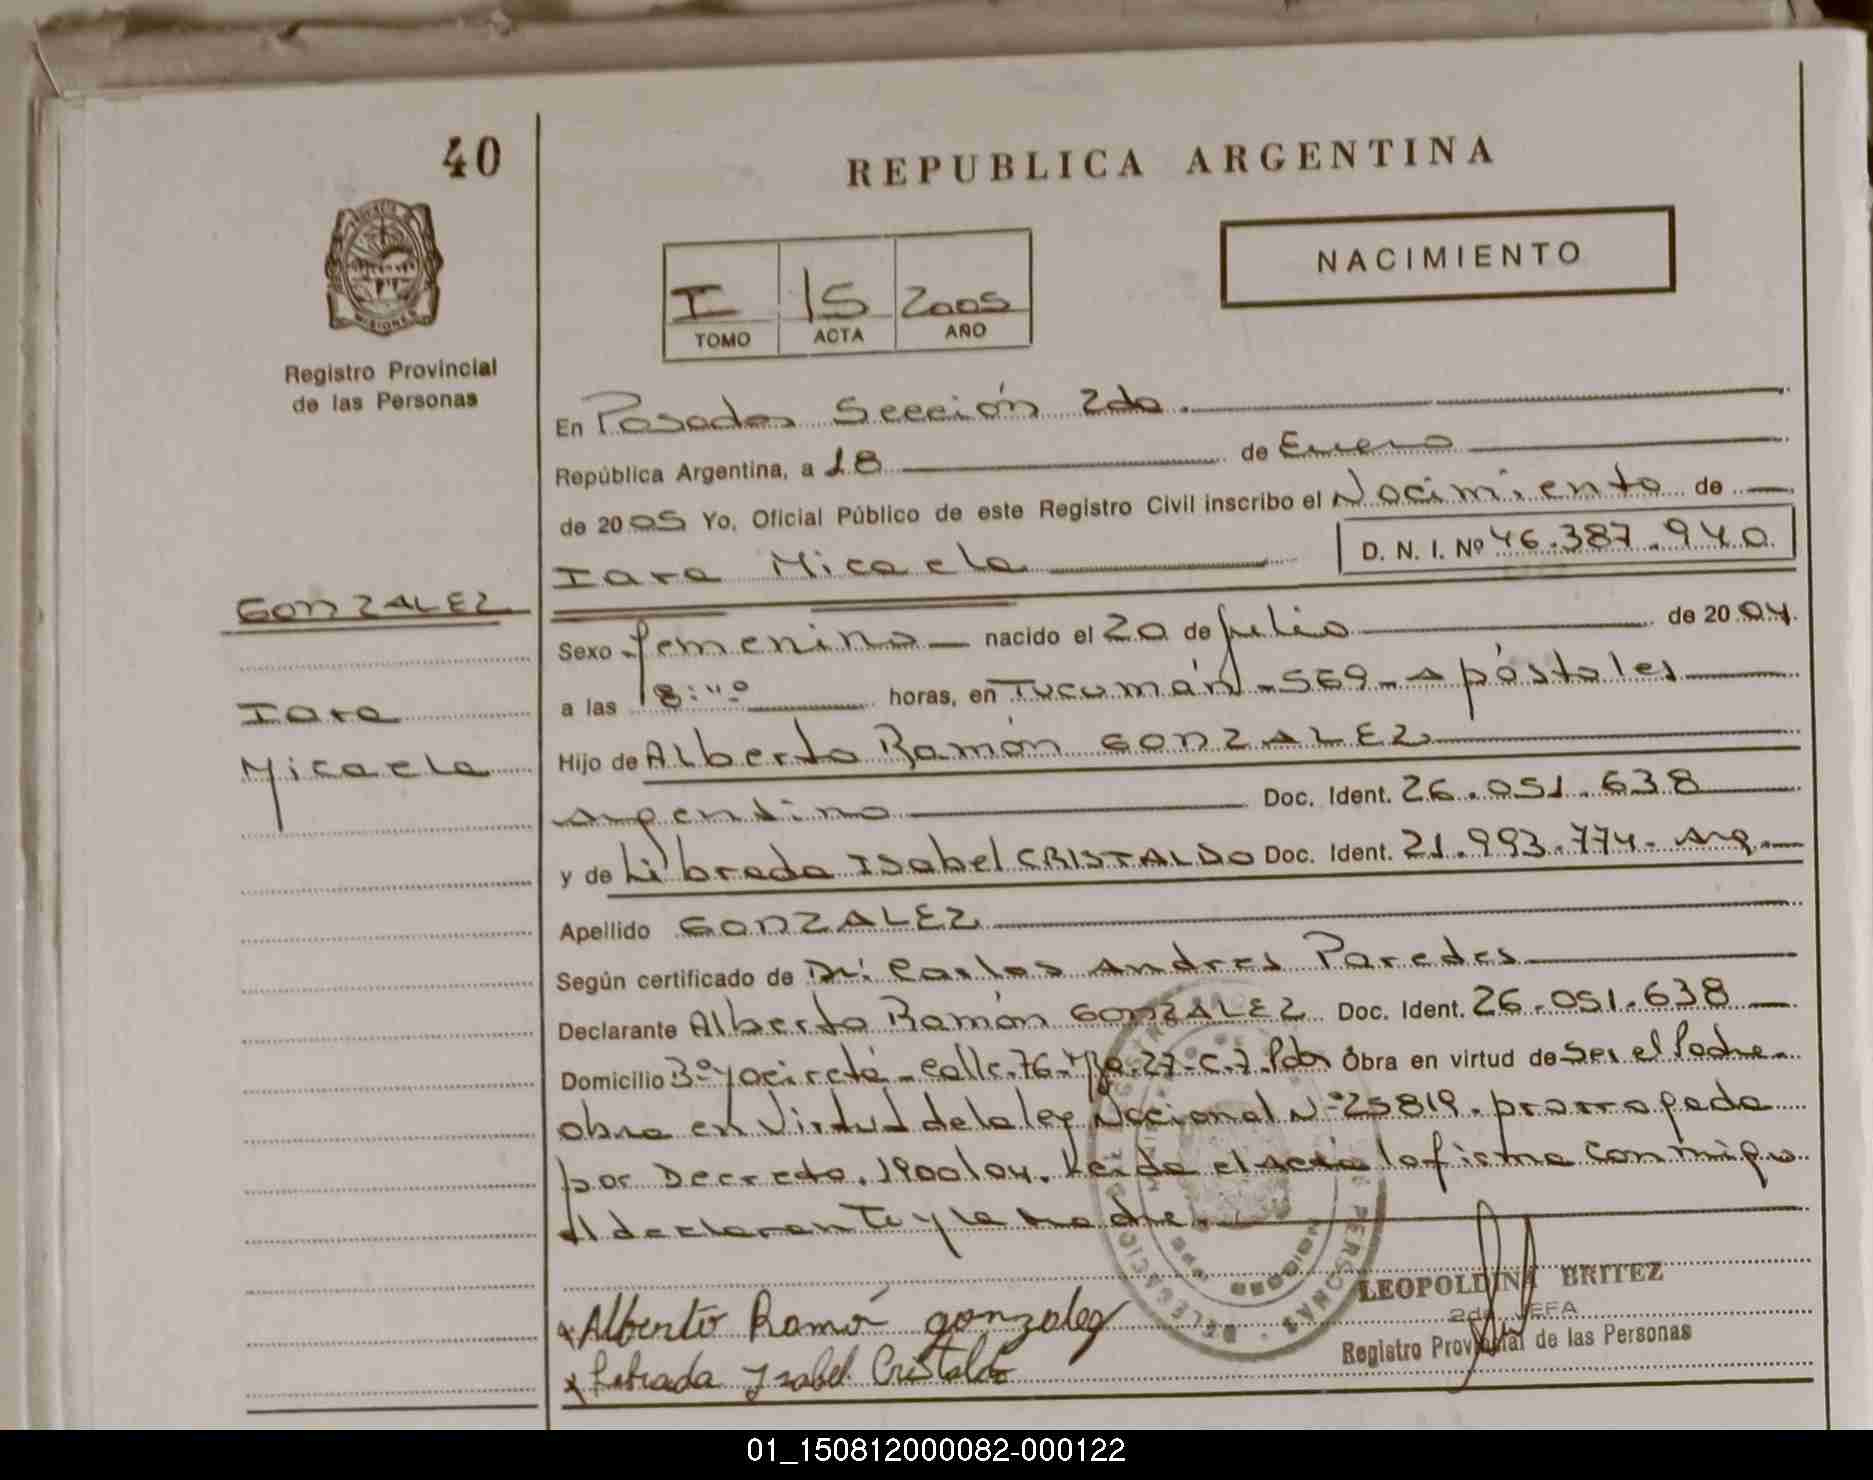 40
REPUBLICA ARGENTINA
NACIMIENTO
I 15 2005
TOMO ACTA AÑO
MISIONES
Registro Provincial
de las Personas
En Posadas Sección 2da.
República Argentina, a 18 de Enero
de 2005 Yo, Oficial Público de este Registro Civil inscribo el Nacimiento de
Iara Micaela D. N. I. Nº 46.387.940
GONZALEZ
Iara
Micaela
Sexo femenino nacido el 20 de julio de 2004.
a las 18: horas, en Tucumán - 569 - Apóstoles
Hijo de Alberto Ramón GONZALEZ
Argentino Doc. Ident. 26.051.638
y de Librada Isabel CRISTALDO Doc. Ident. 21.993.774 - Arg.
Apellido GONZALEZ
Según certificado de Dr: Carlos Andres Paredes
Declarante Alberto Ramón GONZALEZ Doc. Ident. 26.051.638
Domicilio Bº Yaciretá - Calle. 76 - Mza. 27 - C. 7. Pdas Obra en virtud de Ser el Padre
obra en Virtud de la ley Nacional Nº 25819. prorrogada
por Decreto. 1900/04. Leída el acta la firma conmigo
el declarante y la Madre.
LEOPOLDINA BRITEZ
2da JEFA
Registro Provincial de las Personas
x Alberto Ramó gonzalez
x Librada Ysabel Cristaldo
01_150812000082-000122